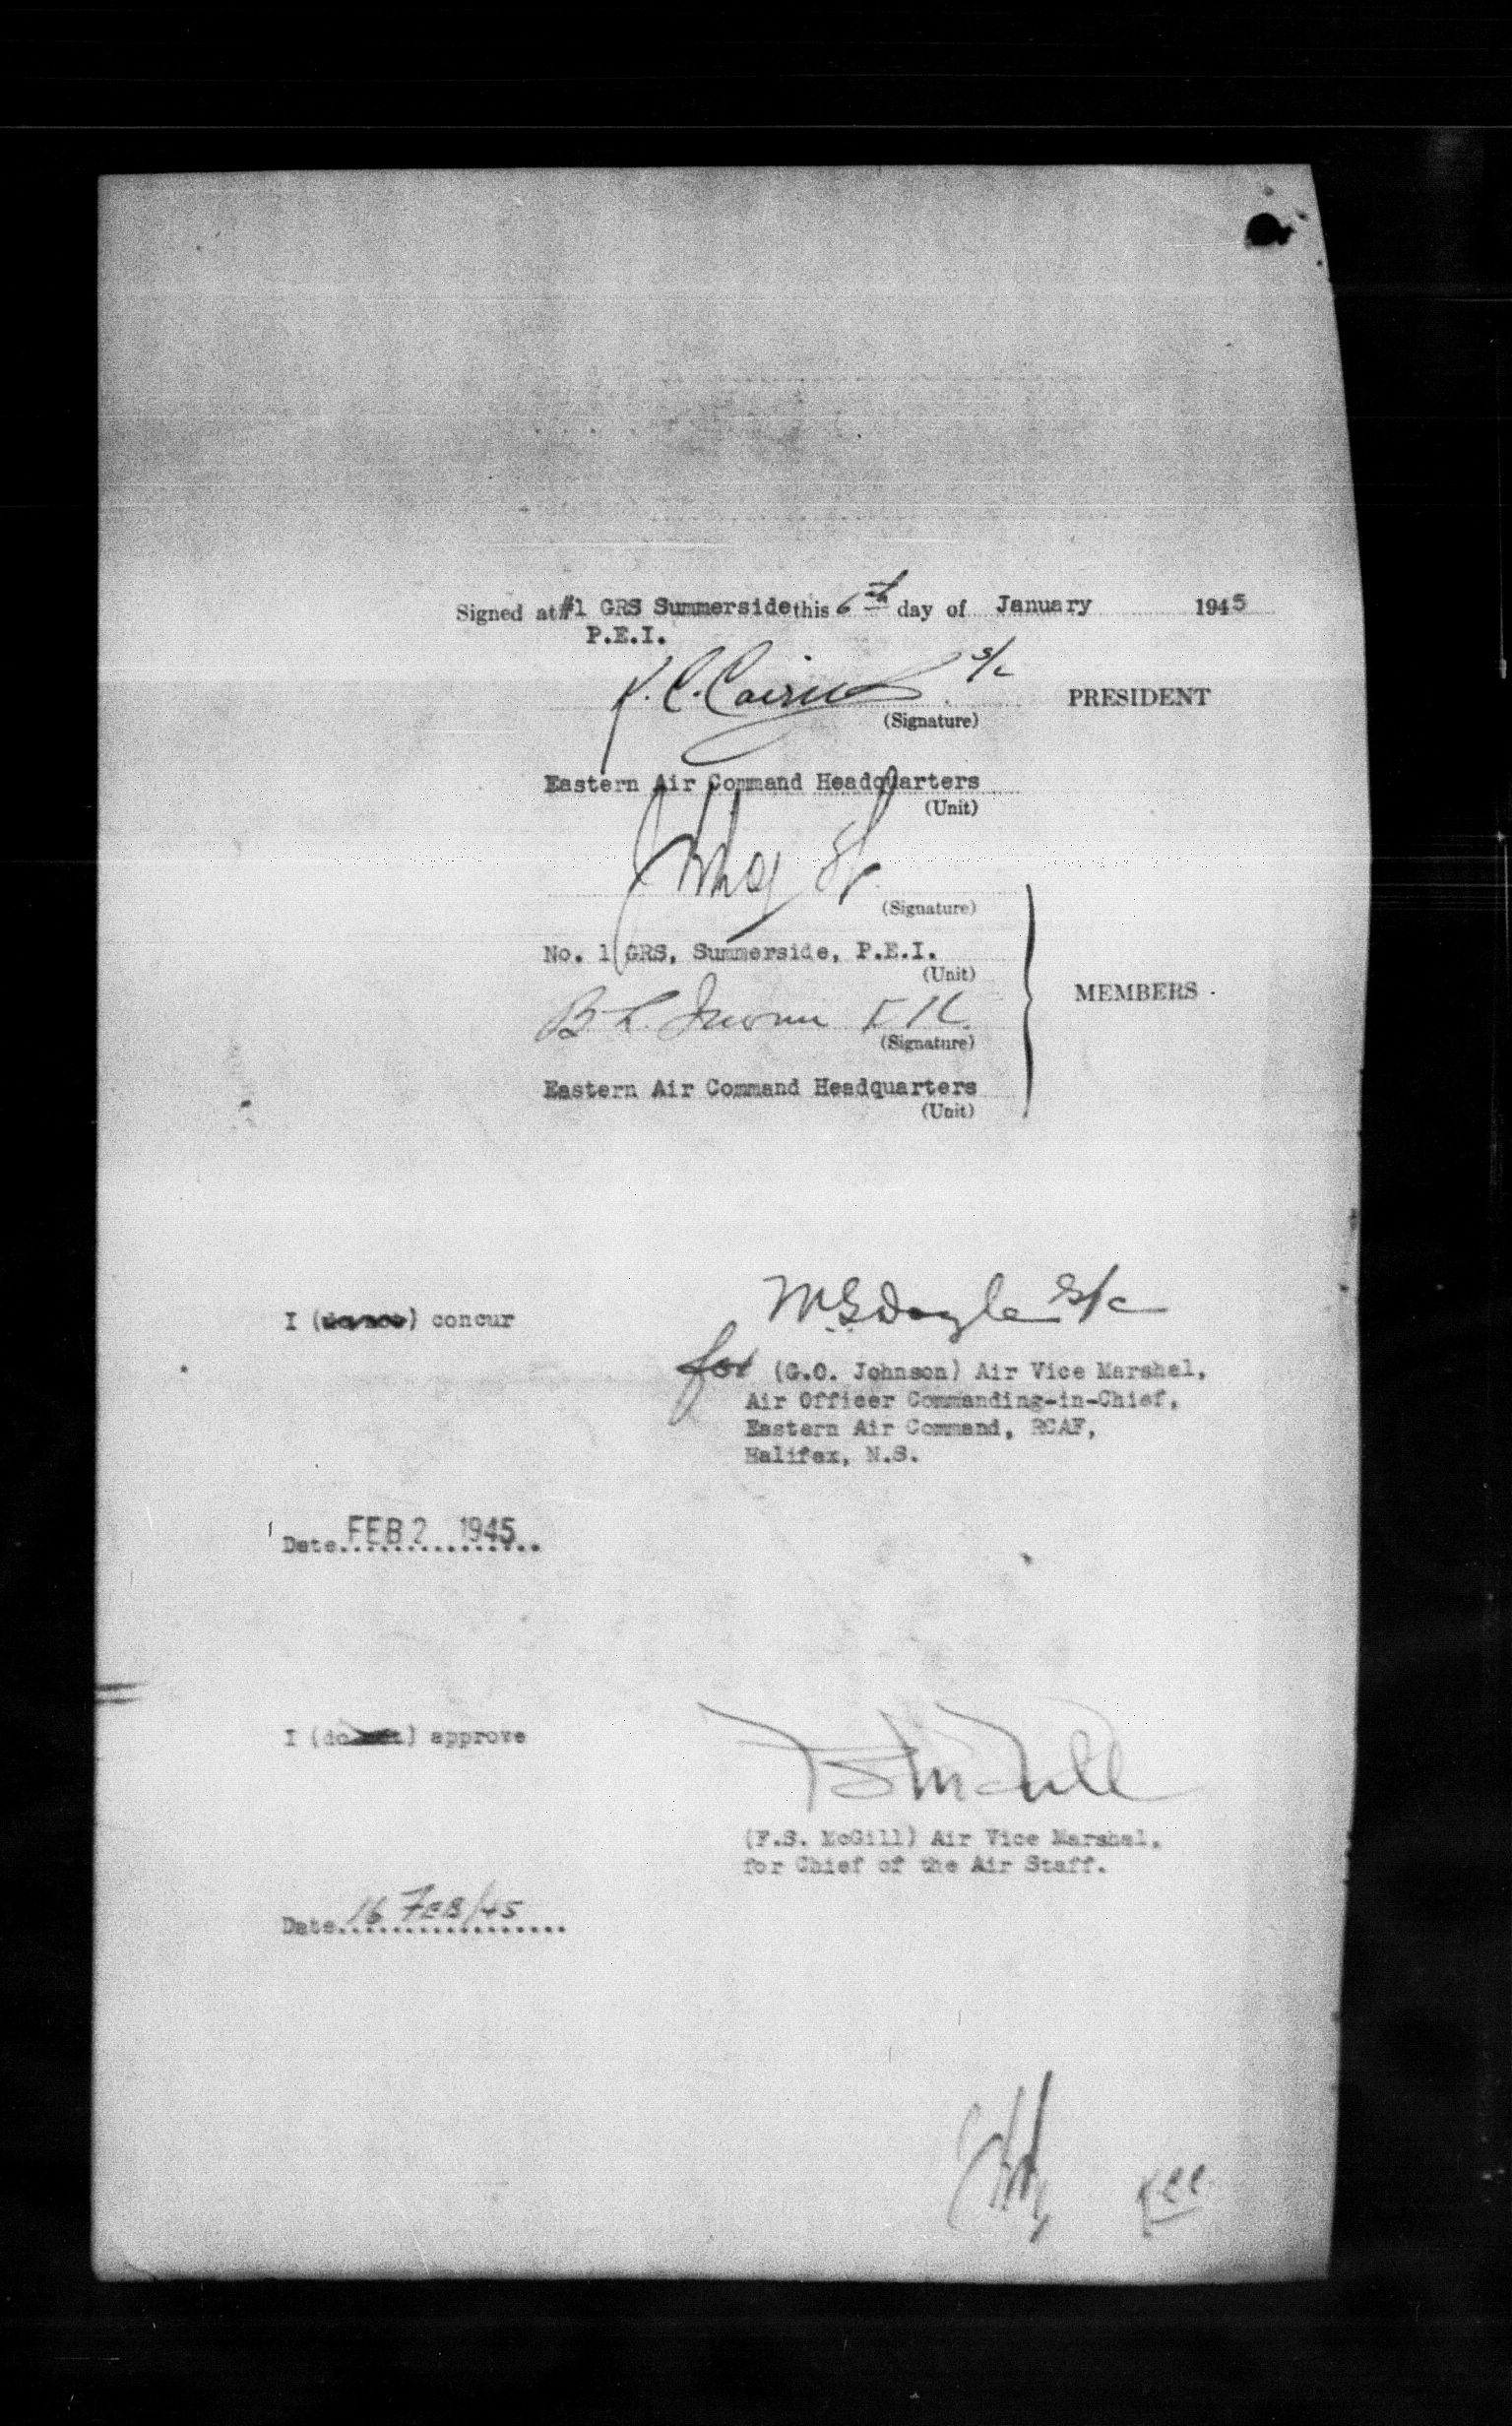 Signed at #1 GRS Summerside this 6th day of January 1945
P.E.I.
K.C. Cairns S/L
PRESIDENT
(Signature)
Eastern Air Command Headquarters
(Unit)
(Signature)
No. 1 GRS, Summerside, P.E.I.
(Unit)
MEMBERS
B L.
(Signature)
Eastern Air Command Headquarters
(Unit)
I (do not) concur
for (G.O. Johnson) Air Vice Marshal,
Air Officer Commanding-in-Chief,
Eastern Air Command, RCAF,
Halifax, N.S.
Date FEB 2 1945
I (do not) approve
(F.S. McGill) Air Vice Marshal,
for Chief of the Air Staff.
Date 16 FEB/45